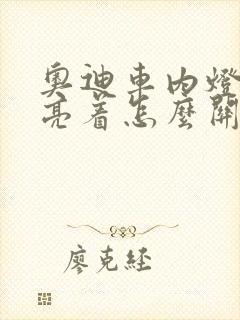 奧迪車內燈
亮著怎麼關
廖克經